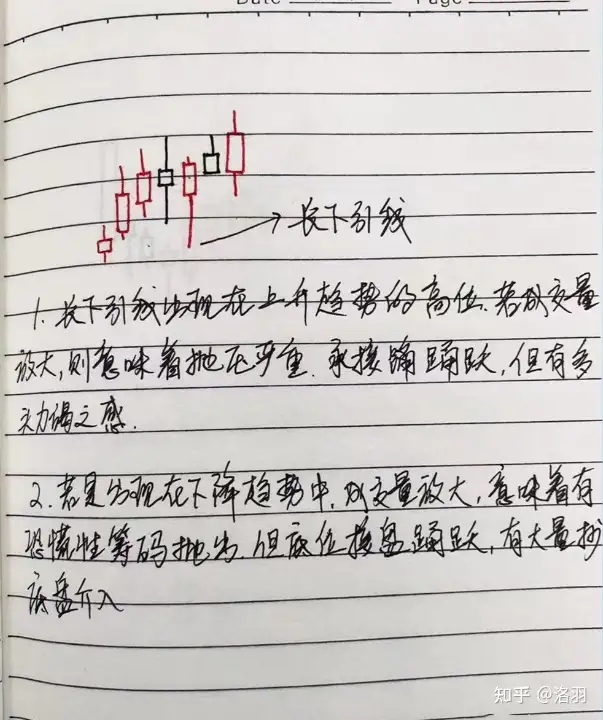 Date Page
长下引线
1. 长下引线出现在上升趋势的高位.若成交量
放大,则意味着抛压严重.承接踊跃,但有多
头力竭之感.
2.若是出现在下降趋势中,成交量放大,意味着有
恐慌性筹码抛出.但底位接盘踊跃,有大量抄
底盘介入
知乎 @洛羽